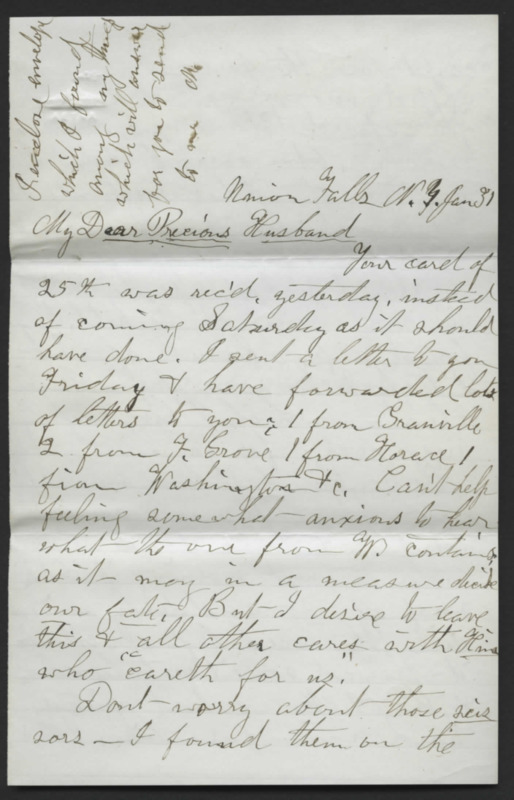 I enclose envelope
which I found
among my things
which will answer
for you to send
to me
Union Falls N.Y. Jan 31
My Dear Precious Husband
Your card of
25th was rec'd, yesterday, instead
of coming Saturday as it should
have done. I sent a letter to you
Friday & have forwarded lots
of letters to you; 1 from Granville
2 from F. Grove 1 from Horace 1
from Washington &c. Can't help
feeling somewhat anxious to hear
what the one from W. contains,
as it may in a measure decide
our fate, But I desire to leave
this & all other cares with Him
who "careth for us."
Dont worry about those scis
sors - I found them on the